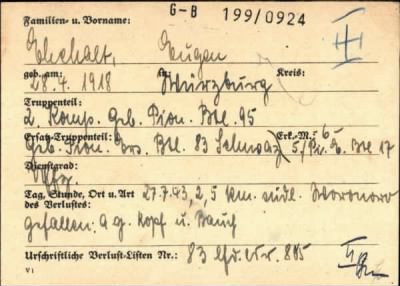 G-B 199/0924
Familien- u. Vorname:
Ehehalt, Eugen
geb. am: in: Kreis:
28.4.1918 Würzburg
Truppenteil:
2. Komp. Geb. Pion. Btl. 95
Ersatz-Truppenteil: Erk.-M.: 65
Geb. Pion. Ers. Btl. 83 Schwaz 5/Pi. E. Btl 17
Dienstgrad:
Uffz.
Tag, Stunde, Ort u. Art 27.7.43, 2,5 km südl.
des Verlustes:
gefallen: a g. Kopf u. Bauch
Urschriftliche Verlust-Listen Nr.: 83 lfd. Nr. 805
V I